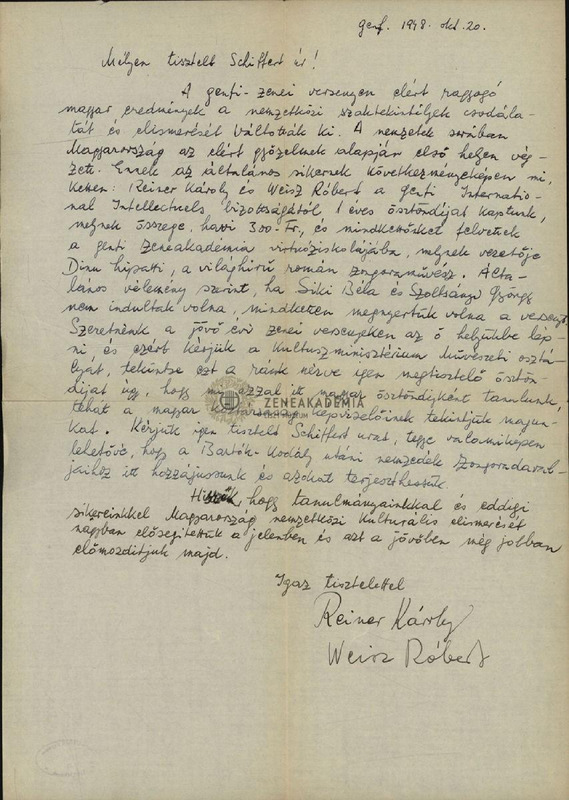 Genf. 1948. okt. 20.
Mélyen tisztelt Schiffert úr!
A genfi-zenei versenyen elért ragyogó
magyar eredmények a nemzetközi szaktekintélyek csodála-
tát és elismerését váltották ki. A nemzetek sorában
Magyarország az elért győzelmek alapján első helyen vég-
zett. Ennek az általános sikernek következményeképen mi,
ketten: Reiner Károly és Weisz Róbert a genfi Internatio-
nal Intellectuels bizottságától 1 éves ösztöndíjat kaptunk,
melynek összege havi 300-Fr, és mindkettőnket felvettek
a genfi Zeneakadémia virtuóziskolájába, melynek vezetője
Dinu Lipatti, a világhírű román zongoraművész. Álta-
lános vélemény szerint, ha Siki Béla és Szoltsányi György
nem indultak volna, mindketten megnyertük volna a versenyt.
Szeretnénk a jövő évi zenei versenyeken az ő helyükbe lép-
ni, és ezért kérjük a Kultuszminisztérium Művészeti osztá-
lyát, tekintse ezt a ránk nézve igen megtisztelő ösztön-
díjat úgy, hogy mi ezzel itt magyar ösztöndíjként tanulunk,
tehát a magyar köztársaság képviselőinek tekintjük magun-
kat. Kérjük igen tisztelt Schiffert urat, tegye valamiképen
lehetővé, hogy a Bartók-Kodály utáni nemzedék zongoradarab-
jaihoz itt hozzájussunk és azokat terjeszthessük.
Hisszük, hogy tanulmányainkkal és eddigi
sikereinkkel Magyarország nemzetközi kulturális elismerését
nagyban elősegítettük a jelenben és azt a jövőben még jobban
előmozdítjuk majd.
Igaz tisztelettel
Reiner Károly
Weisz Róbert
ZENEAKADÉMIA